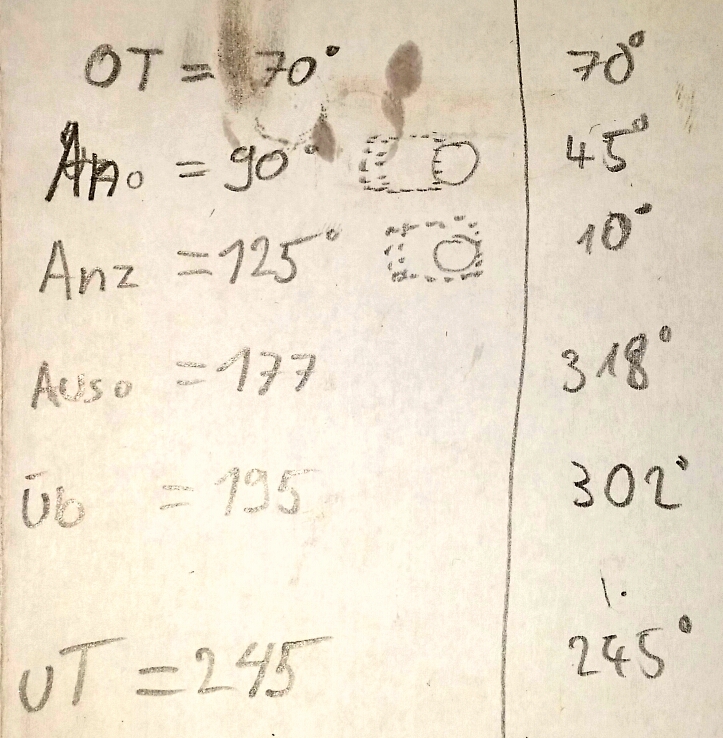 OT = 70° 70°
Ano = 90° 45°
Anz = 125° 10°
Auso = 177 318°
Üb = 195 302°
UT = 245 245°